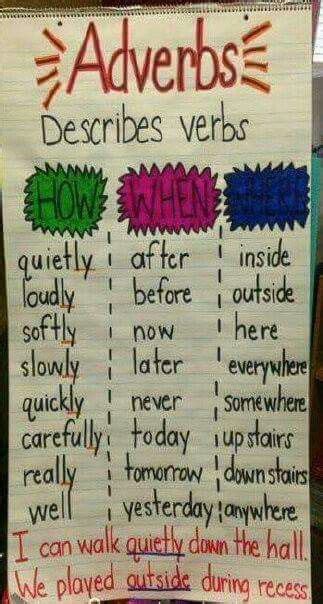 Adverbs
Describes verbs
HOW WHEN WHERE
quietly after inside
loudly before outside
softly now here
slowly later everywhere
quickly never somewhere
carefully today upstairs
really tomorrow downstairs
well yesterday anywhere
I can walk quietly down the hall.
We played outside during recess